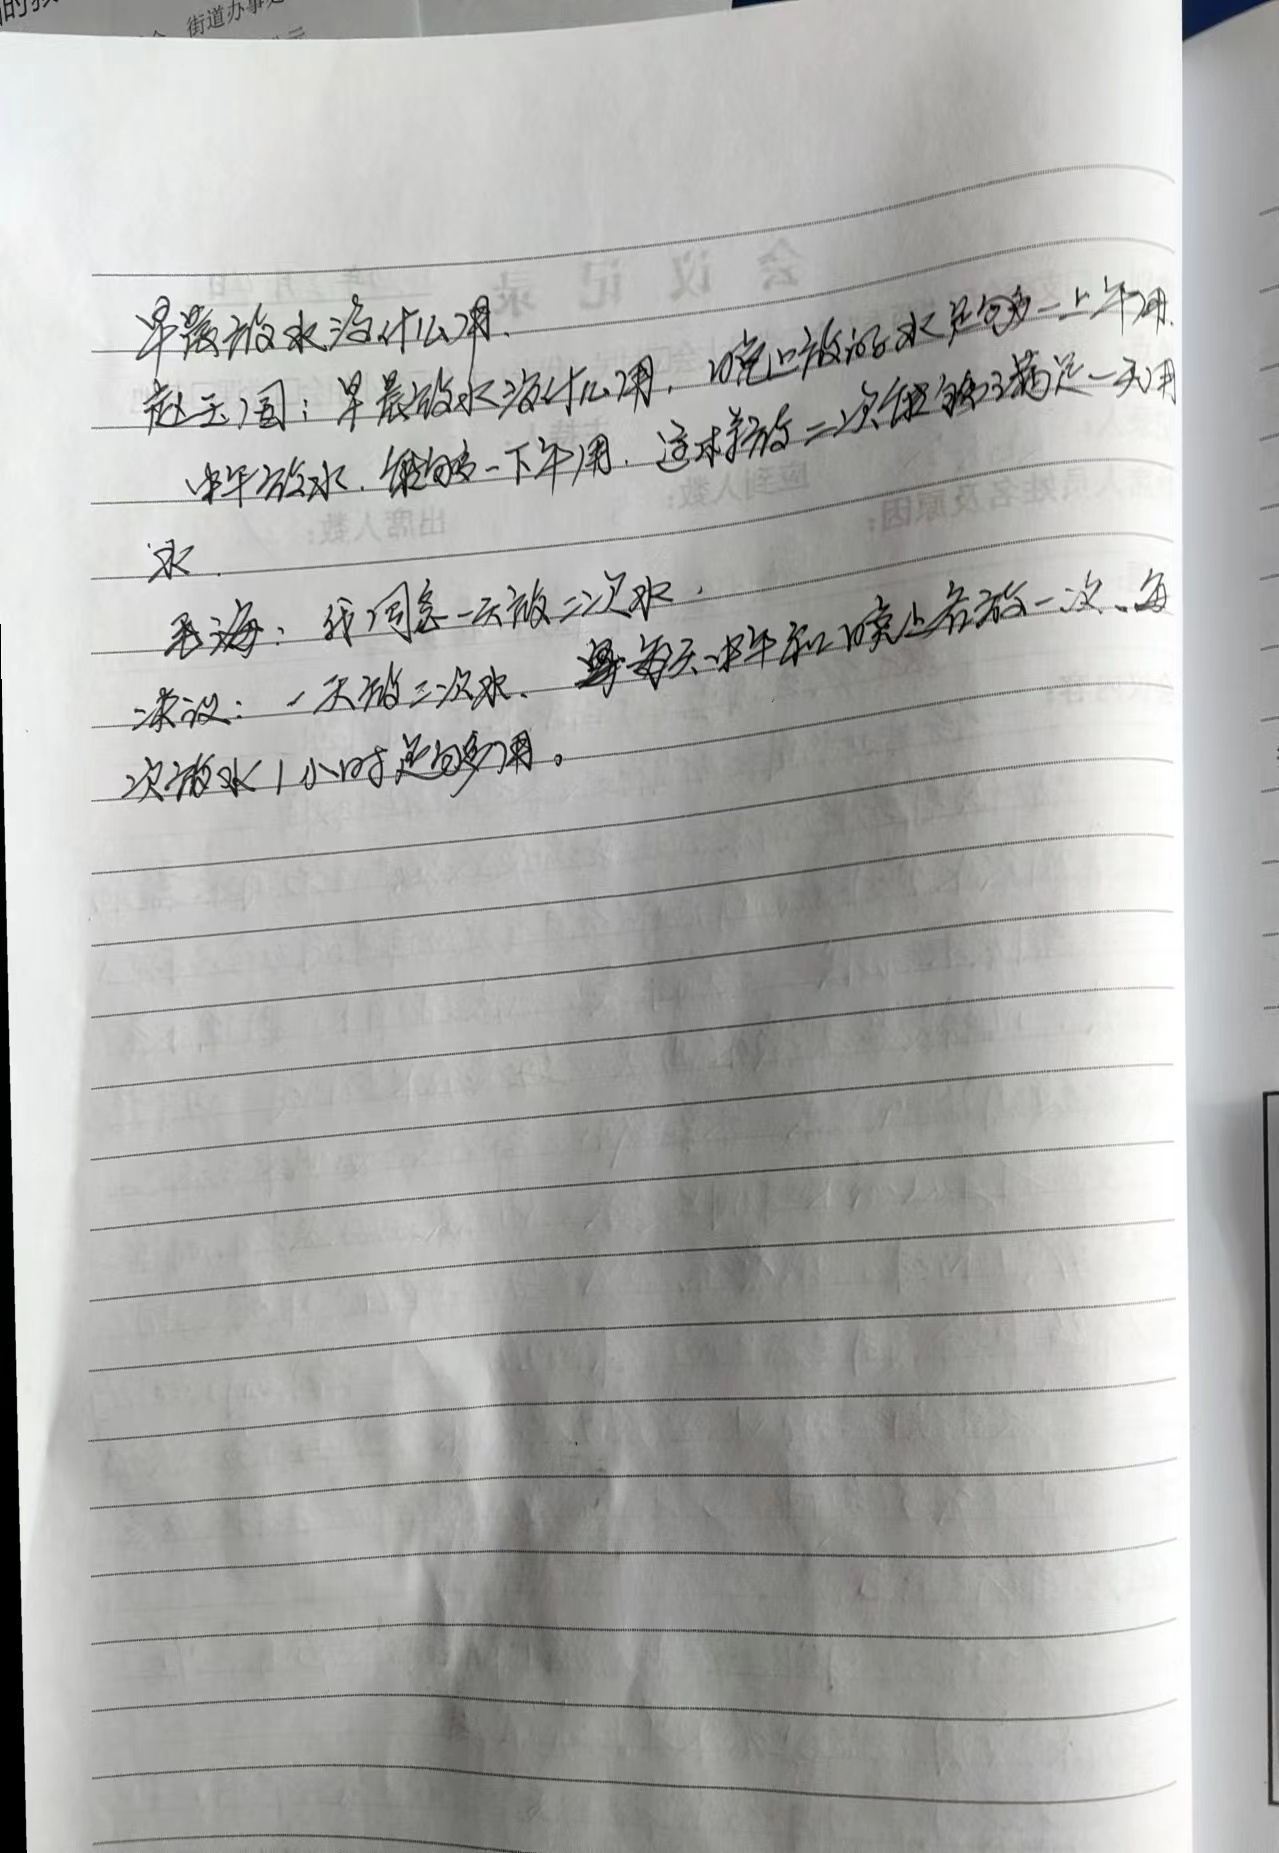 街道办事处
早晨放水没什么用.
赵玉国：早晨放水没什么用，晚上放的水足够一上午用.
中午放水.能够一下午用.这样放二次能够满足一天用
水.
毛海：我同意一天放二次水.
决议：一天放二次水、每天中午和晚上各放一次、每
次放水1小时足够用。